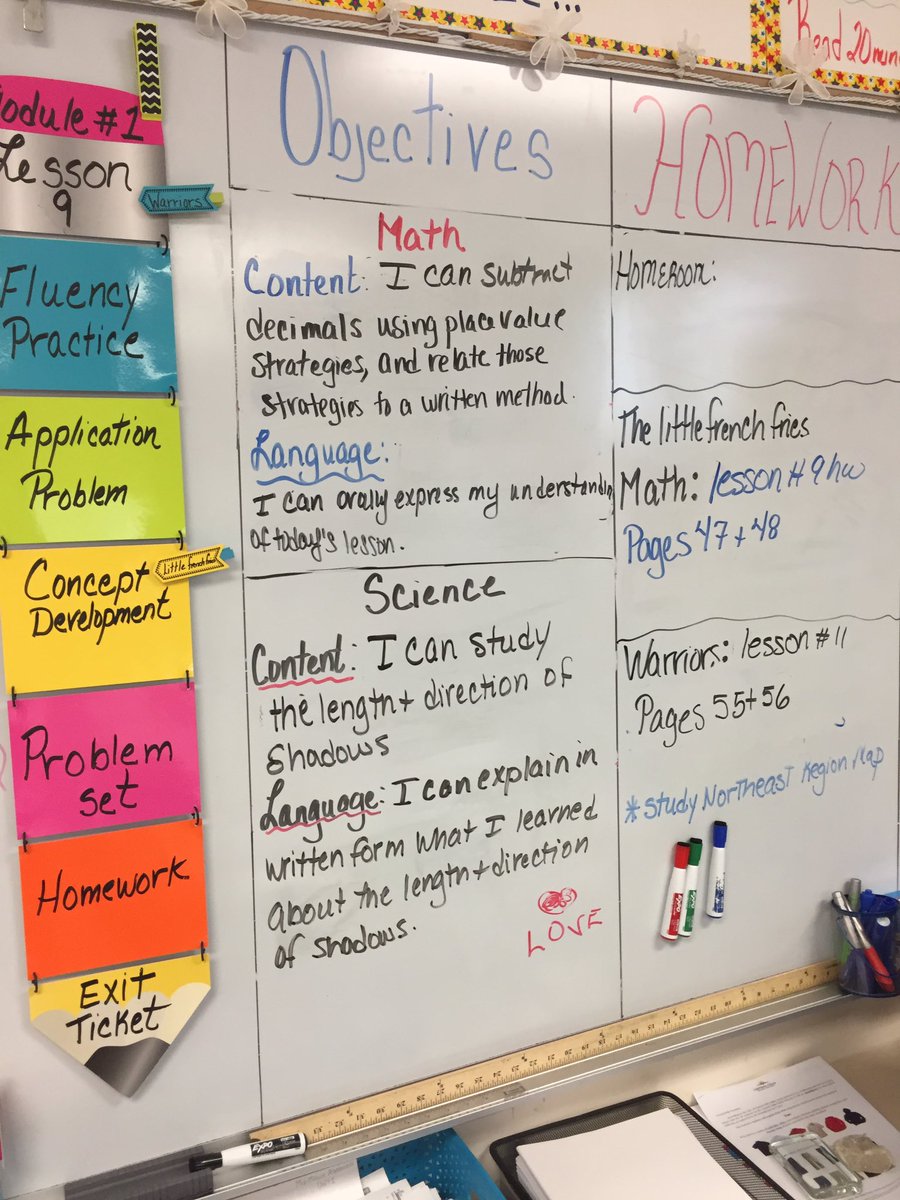 Module #1
Lesson
9
Warriors
Fluency
Practice
Application
Problem
Concept
Development
Little french fries
Problem
set
Homework
EXIT
TICKET
Objectives
Math
Content: I can subtract
decimals using place value
strategies, and relate those
strategies to a written method.
Language:
I can orally express my understanding
of today's lesson.
Science
Content: I can study
the length + direction of
shadows
Language: I can explain in
written form what I learned
about the length + direction
of shadows.
LOVE
Read 20 min
HOMEWORK
HOMEROOM:
The little french fries
Math: lesson # 9 hw
Pages 47 + 48
Warriors: lesson # 11
Pages 55 + 56
*Study Northeast Region Map
EXPO
EXPO
EXPO
EXPO